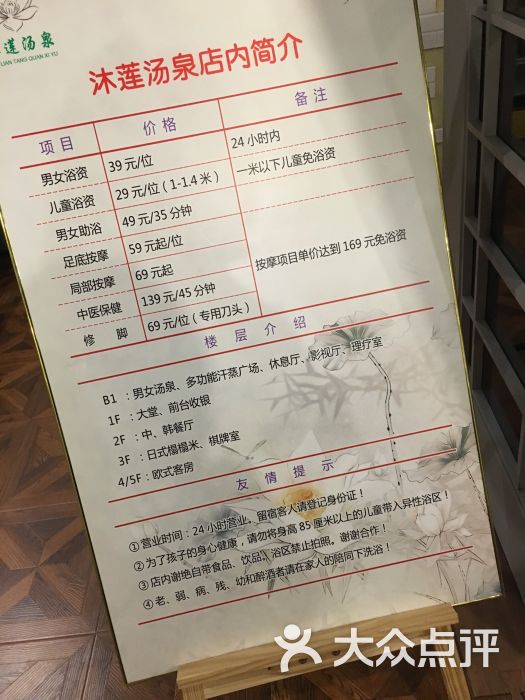 莲汤泉
LIAN TANG QUAN XI YU
沐莲汤泉店内简介
项目 价格 备注
男女浴资 39 元/位 24 小时内
儿童浴资 29 元/位（1-1.4 米） 一米以下儿童免浴资
男女助浴 49 元/35 分钟
足底按摩 59 元起/位
局部按摩 69 元起 按摩项目单价达到 169 元免浴资
中医保健 139 元/45 分钟
修脚 69 元/位（专用刀头）
楼层介绍
B1 ：男女汤泉、多功能汗蒸广场、休息厅、影视厅、理疗室
1F ：大堂、前台收银
2F ：中、韩餐厅
3F ：日式榻榻米、棋牌室
4/5F ：欧式客房
友情提示
①营业时间：24 小时营业。留宿客人请登记身份证！
②为了孩子的身心健康，请勿将身高 85 厘米以上的儿童带入异性浴区！
③店内谢绝自带食品、饮品。浴区禁止拍照。谢谢合作！
④老、弱、病、残、幼和醉酒者请在家人的陪同下洗浴！
大众点评